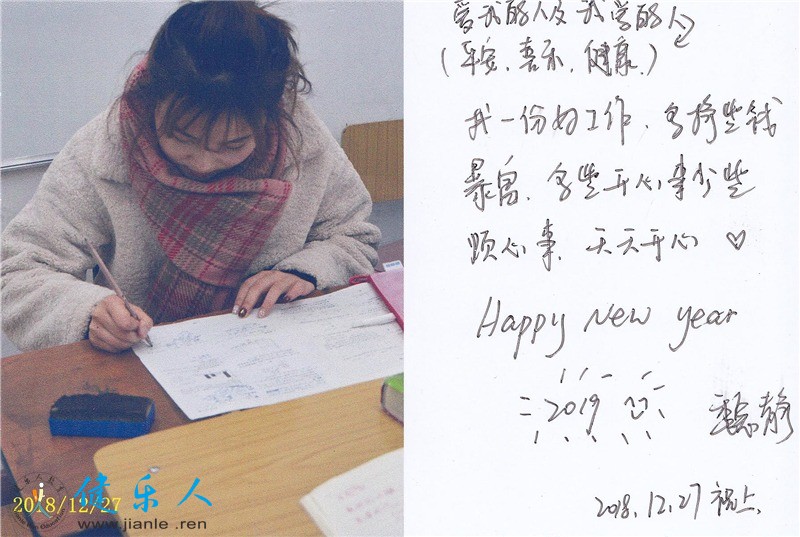 2018/12/27
健乐人
www.jianle.ren
爱我的人及我爱的人
(平安、喜乐、健康)
找一份好工作、多挣些钱
暴富、多些开心事少些
烦心事、天天开心♡
Happy New year
2019
静
2018.12.27 祝上.